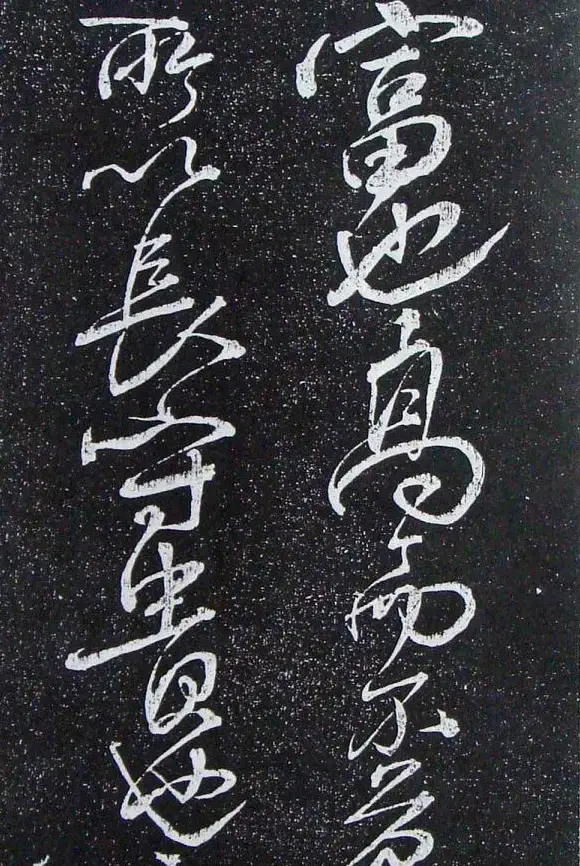 富也高而不
所以長守貴也